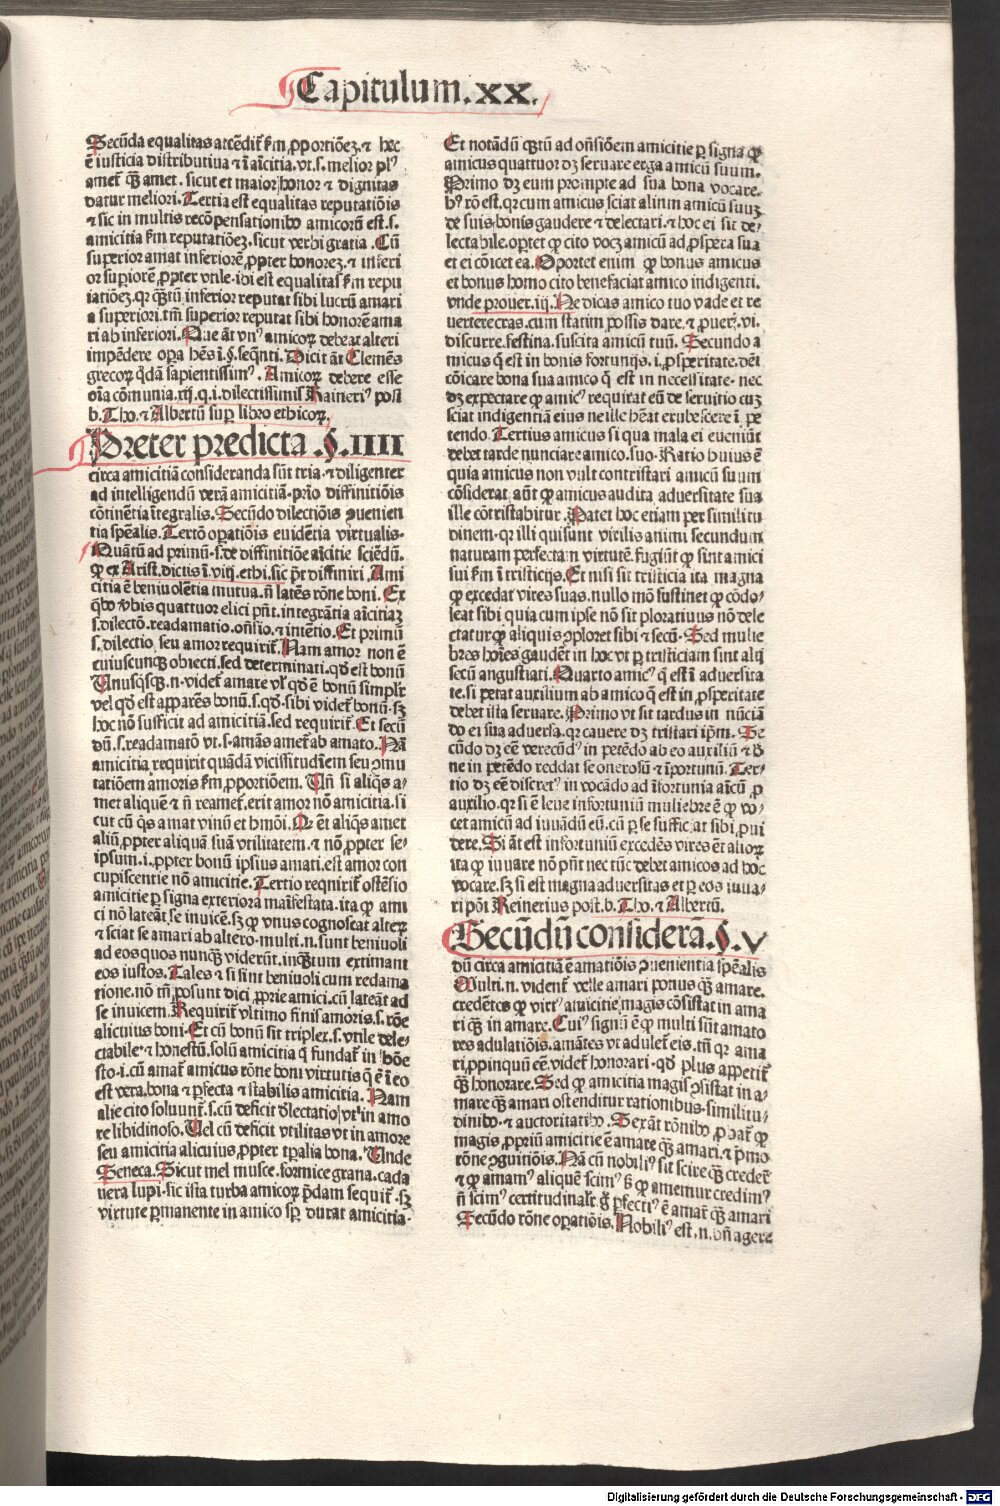 Capitulum.xx.
Secūda equalitas attēdit᷑ ẜm ꝓportiōeʒ.⁊ hec
ē iusticia distributiua ⁊ ī aīcitia.vt.s.melior plꝰ
amet᷑ qͣʒ amet.sicut et maior honor ⁊ dignitas
datur meliori.Tertia est equalitas reputatiōis
⁊ sic in multis recōpensationibꝰ amicorū est.s.
amicitia ẜm reputatiōeʒ.sicut verbi gratia.Cū
superior amat inferiorē ꝓpter honoreʒ.⁊ inferi
or supiorē ꝓpter vtile.ibi est equalitas ẜm repu
iatiōeʒ.qꝛ qͣʒtū inferior reputat sibi lucrū amari
a superiori.tm̄ superior reputat sibi honorē ama
ri ab inferiori.Que āt vnꝰ amicoꝝ debeat alteri
impēdere oꝑa hēs ī.§.seqn̄ti.Dicit āt Clemēs
grecoꝝ qͥdā sapientissimꝰ.Amicoꝝ debere esse
oīa cōmunia.xij.q.i.dilectissimis Raineriꝰ post
b.Tho.⁊ Albertū suꝑ libro ethicoꝝ.
Preter predicta.§.IIII
circa amicitiā consideranda sūt tria.⁊ diligenter
ad intelligendū verā amicitiā.prīo diffinitiōis
cōtinētia ītegralis.Secūdo dilectiōis ꝯuenien
tia spēalis.Tertō oꝑatiōis euidētia virtualis.
Quātū ad primū.s.de diffinitiōe aīcitie sciēdū.
ꝙ ex Arist.dictis ī.viij.ethi.sic pt̄ diffiniri.Ami
citia ē beniuolētia mutua.n̄ latēs rōne boni.Ex
qͥbꝰ ꝟbis quattuor elici pn̄t.integrātia aīcitiaʒ
s.dilectō.readamatio.on̄sio.⁊ intētio.Et primū
s.dilectio seu amor requirit᷑.Nam amor non ē
cuiuscunqʒ obiecti.sed determinati.qd̓ est bonū
Unusqͥsqʒ.n.videt᷑ amare vl̓ qd̓ ē bonū simplr̄
vel qd̓ est apparēs bonū.s.qd̓.sibi videt᷑ bonū.sʒ
hoc nō sufficit ad amicitiā.sed requirit᷑.Et secū
dū.s.readamatō vt.s.amās amet᷑ ab amato.Nā
amicitia requirit quādā vicissitudīem seu ꝯmu
tatiōem amoris ẜm ꝓportiōem.Un̄ si aliqͥs a⸗
met aliquē ⁊ n̄ reamet᷑.erit amor nō amicitia.si
cut cū qͥs amat vinū et hmōi.Qꝛ ēt aliqͥs amet
aliū ꝓpter aliquā suā vtilitatem.⁊ nō ꝓpter se⸗
ipsum.i.ꝓpter bonū ipsius amati.est amor con
cupiscentie nō amicitie.Tertio reqnirit᷑ ostēsio
amicitie ꝑ signa exteriora maīfestata.ita ꝙ ami
ci nō lateāt se inuicē.sʒ ꝙ vnus cognoscat alteꝝ
⁊ sciat se amari ab altero.multi.n.sunt beniuoli
ad eos quos nunqͣʒ viderūt.inqͣʒtum extimant
eos iustos.Tales ⁊ si sint beniuoli cum redama
tione.nō tn̄ possunt dici ꝓprie amici.cū lateāt ad
se inuicem.Requirit᷑ vltimo finis amoris.s.rōe
alicuius boni.Et cū bonū sit triplex.s.vtile dele⸗
ctabile.⁊ honestū.solū amicitia q̄ fundat᷑ in bōe
sto.i.cū amat᷑ amicus rōne boni virtutis q̄ ē ī eo
est vera.bona ⁊ ꝑfecta ⁊ stabilis amicitia.Nam
alie cito soluunt᷑.s.cū deficit d̓lectatio vt in amo
re libidinoso.Uel cū deficit vtilitas vt in amore
seu amicitia alicuius ꝓpter tꝑalia bona.Unde
Seneca.Sicut mel musce.formice grana.cada
uera lupi.sic ista turba amicoꝝ p̄dam sequit᷑.sʒ
virtute ꝑmanente in amico sꝑ durat amicitia.
Et notādū qͣʒtū ad on̄siōem amicitie ꝑ signa ꝙ
amicus quattuor dʒ seruare erga amicū suum.
Primo dʒ eum prompte ad sua bona vocare.
hꝰ rō est.qꝛ cum amicus sciat alium amicū suuʒ
de suis bonis gaudere ⁊ delectari.⁊ hoc ei sit de⸗
lectabile.oꝑtet ꝙ cito vocʒ amicū ad ꝓspera sua
et ei cōicet ea.Oportet enim ꝙ bonus amicus
et bonus homo cito benefaciat amico indigenti.
vnde prouer.iij.Ne dicas amico tuo vade et re
uertere cras.cum statim possis dare.⁊ ꝓuer.vi.
discurre.festina.suscita amicū tuū.Secundo a
micus q̄ est in bonis fortunijs.i.ꝓsperitate.dēt
cōicare bona sua amico q̄ est in necessitate.nec
dʒ expectare ꝙ amicꝰ requirat eū de seruitio cuʒ
sciat indigentiā eius ne ille hēat erubescere ī pe
tendo.Tertius amicus si qua mala ei eueniūt
debet tarde nunciare amico suo.Ratio huius ē
quia amicus non vult contristari amicū suum
cōsiderat aūt ꝙ amicus audita aduersitate sua
ille cōtristabitur.Patet hoc etiam per similitu
dinem.qꝛ illi qui sunt virilis animi secundum
naturam perfectam virtutē.fugiūt ꝙ sint amici
sui ẜm ī tristicijs.Et nisi sit tristicia ita magna
ꝙ excedat vires suas.nullo mō sustinet ꝙ cōdo⸗
leat sibi quia cum ipse nō sit ploratiuus nō dele
ctatur ꝙ aliquis ꝯploret sibi ⁊ secū.Sed mulie
bres hoīes gaudēt in hoc vt ꝑ tristiciam sint aliq̄
secū angustiati.Quarto amicꝰ q̄ est ī aduersita
te.si petat auxilium ab amico q̄ est in ꝓsperitate
debet ista seruare.Primo vt sit tardus in nūciā
do ei sua aduersa.qꝛ cauere dʒ tristari ip̄m.Se
cūdo dʒ eē verecūdꝰ in petēdo ab eo auxiliū ⁊ d̓
ne in petēdo reddat se onerosū ⁊ īportunū.Ter⸗
tio dʒ eē discretꝰ in vocādo ad īfortunia aīcū ꝓ
auxilio.qꝛ si ē leue infortuniū muliebre ē ꝙ vo⸗
cet amicū ad iuuādū eū.cū ꝑ se sufficiat sibi ꝓui
dere.Si āt est infortuniū excedēs vires ēt alioꝝ
ita ꝙ iuuare nō pn̄t nec tūc debet amicos ad hoc
vocare.sʒ si est magna aduersitas et ꝑ eos iuua⸗
ri pōt Reinerius post.b.Tho.⁊ Albertū.
Secūdū considerā.§.V
dū circa amicitiā ē amatiōis ꝯuenientia spēalis
Multi.n.vident᷑ velle amari potius qͣʒ amare.
credētes ꝙ virtꝰ amicitie magis cōsistat in ama
ri qͣʒ in amare.Cuiꝰ signū ē ꝙ multi sūt amato
res adulatiōis.amātes vt adulet᷑ eis.tn̄ qꝛ ama
ri ꝓpinquū eē.videt᷑ honorari.qd̓ plus appetit᷑
qͣʒ honorare.Sed ꝙ amicitia magis ꝯsistat in a⸗
mare qͣʒ amari ostenditur rationibus.similitu⸗
dinibꝰ.⁊ auctoritatibꝰ.Sex āt rōnibꝰ ꝓbat᷑ ꝙ
magis ꝓpriū amicitie ē amare qͣʒ amari.⁊ pͥmo
rōne ꝯgnitiōis.Nā cū nobiliꝰ sit scire qͣʒ credeť
⁊ ꝙ amamꝰ aliquē scimꝰ ẞ ꝙ amemur credimꝰ
n̄ scimꝰ certitudinalr̄ g̊ ꝑfectiꝰ ē amaŕ qͣʒ amari
Secūdo rōne oꝑatiōis.Nobiliꝰ est.n.bn̄ agere
Digitalisierung gefördert durch die Deutsche Forschungsgemeinschaft - DFG